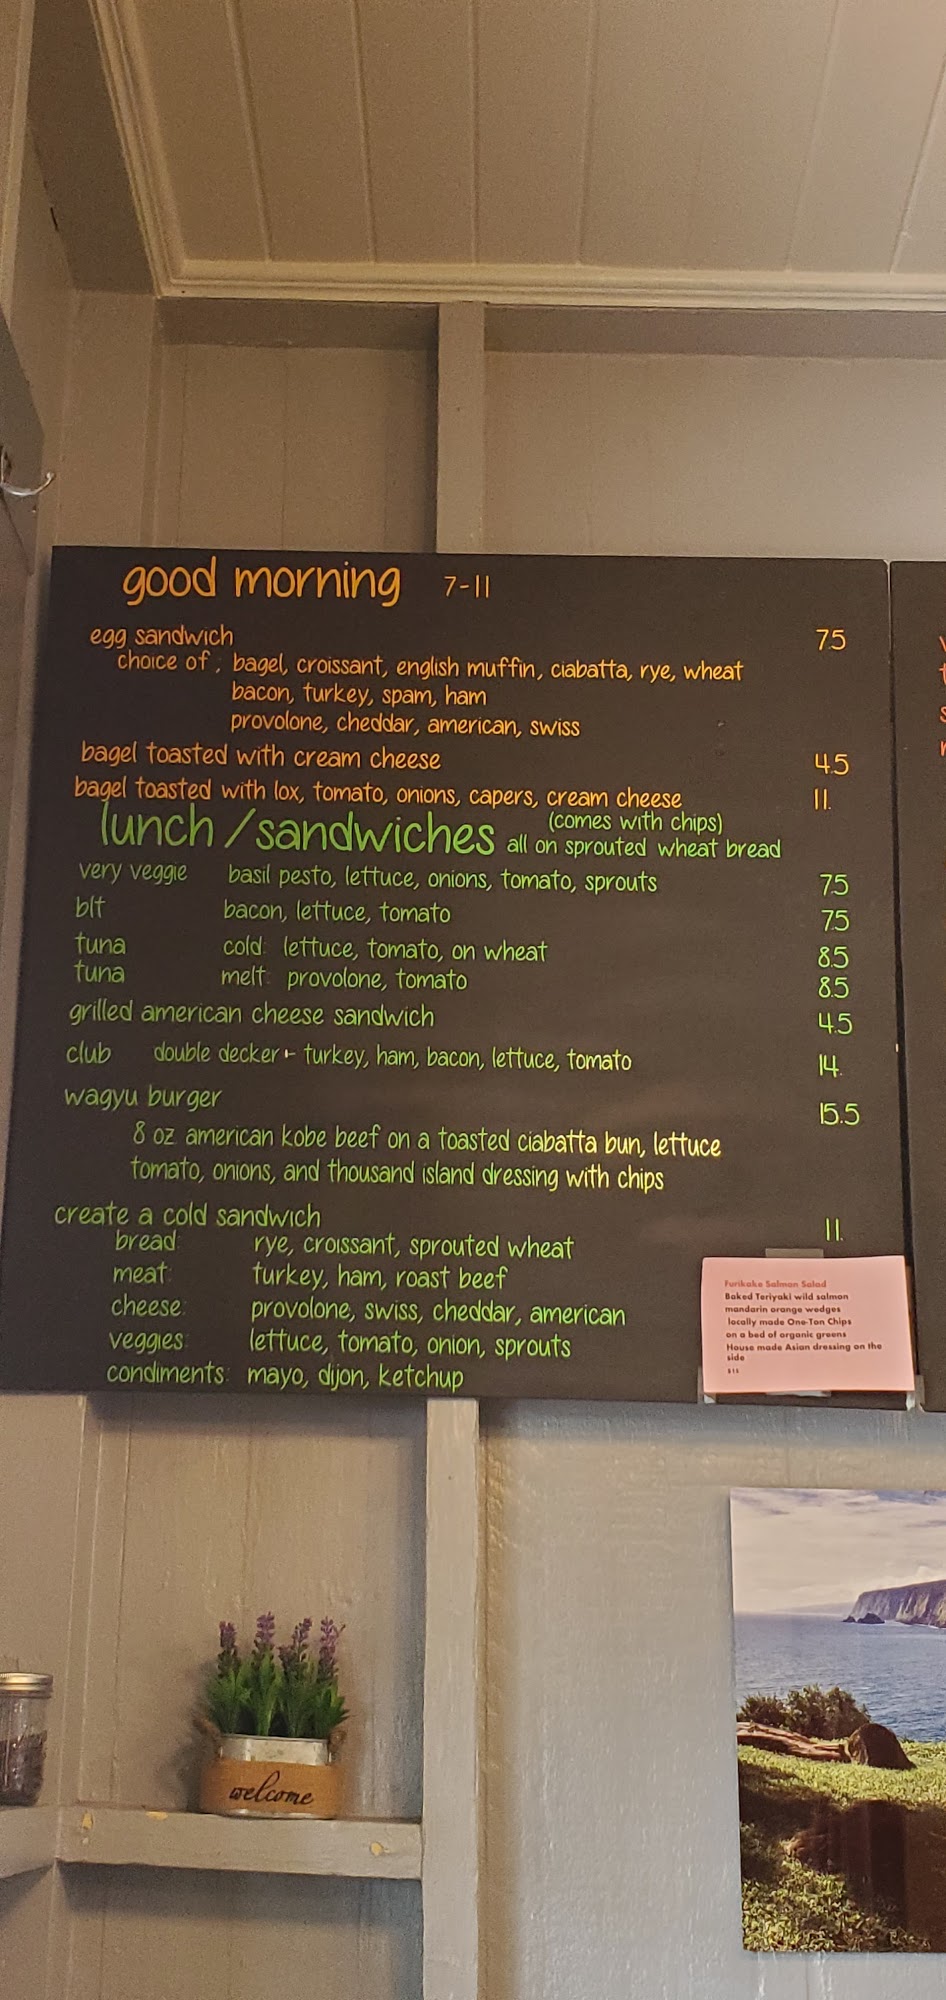 good morning 7-11
egg sandwich 7.5
choice of : bagel, croissant, english muffin, ciabatta, rye, wheat
bacon, turkey, spam, ham
provolone, cheddar, american, swiss
bagel toasted with cream cheese 4.5
bagel toasted with lox, tomato, onions, capers, cream cheese 11.
lunch / sandwiches (comes with chips)
all on sprouted wheat bread
very veggie basil pesto, lettuce, onions, tomato, sprouts 7.5
blt bacon, lettuce, tomato 7.5
tuna cold: lettuce, tomato, on wheat 8.5
tuna melt: provolone, tomato 8.5
grilled american cheese sandwich 4.5
club double decker - turkey, ham, bacon, lettuce, tomato 14.
wagyu burger 15.5
8 oz american kobe beef on a toasted ciabatta bun, lettuce
tomato, onions, and thousand island dressing with chips
create a cold sandwich 11.
bread: rye, croissant, sprouted wheat
meat: turkey, ham, roast beef
cheese: provolone, swiss, cheddar, american
veggies: lettuce, tomato, onion, sprouts
condiments: mayo, dijon, ketchup
Furikake Salmon Salad
Baked Teriyaki wild salmon
mandarin orange wedges
locally made One-Ton Chips
on a bed of organic greens
House made Asian dressing on the
side
welcome